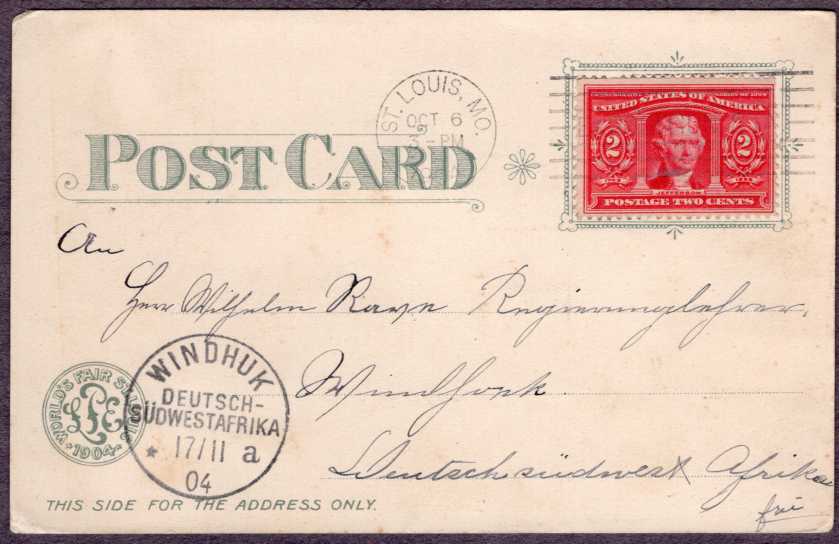 ST. LOUIS, MO.
OCT 6
3 - PM
POST CARD
UNITED STATES OF AMERICA
2 2
JEFFERSON
POSTAGE TWO CENTS
An
Herr Wilhelm Rave Regierungslehrer.
Windhoek
Deutsch südwest Afrika
frei
WORLD'S FAIR ST. LOUIS
LPE
1904
WINDHUK
DEUTSCH-
SÜDWESTAFRIKA
* 17/11 a
04
THIS SIDE FOR THE ADDRESS ONLY.